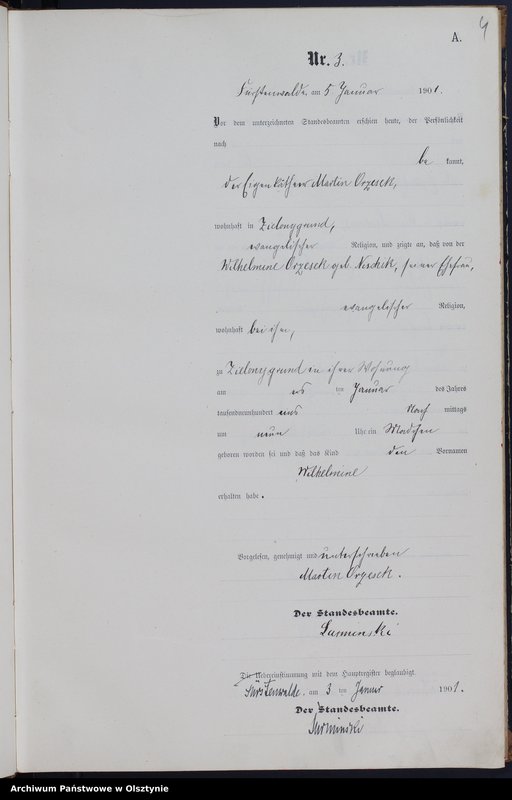 4
A.
Nr. 3.
Fürstenwalde am 5 Januar 1901.
Vor dem unterzeichneten Standesbeamten erschien heute, der Persönlichkeit
nach
be kannt,
der Eigenkäthner Martin Orzesek,
wohnhaft in Zielonygrund,
evangelischer Religion, und zeigte an, daß von der
Wilhelmine Orzesek geb. seiner Ehefrau,
evangelischer Religion,
wohnhaft bei ihm,
zu Zielonygrund in ihrer Wohnung
am ten Januar des Jahres
tausendneunhundert eins Nach mittags
um neun Uhr ein Mädchen
geboren worden sei und daß das Kind den Vornamen
Wilhelmine
erhalten habe.
Vorgelesen, genehmigt und unterschrieben
Martin Orzesek.
Der Standesbeamte.
Die Uebereinstimmung mit dem Hauptregister beglaubigt
Fürstenwalde, am 3 ten Januar 1901.
Der Standesbeamte.
Archiwum Państwowe w Olsztynie